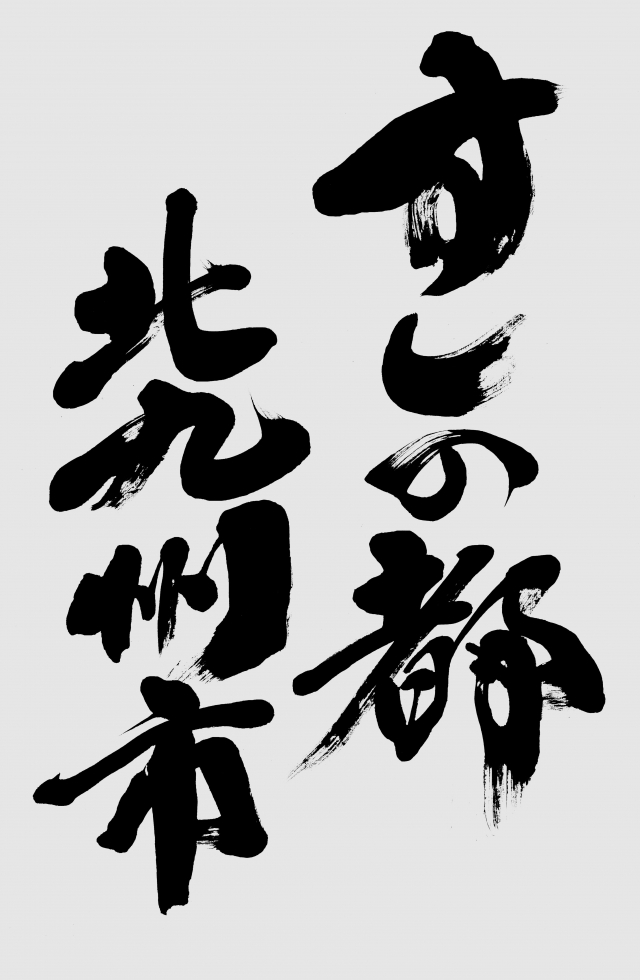 すしの都
北九州市